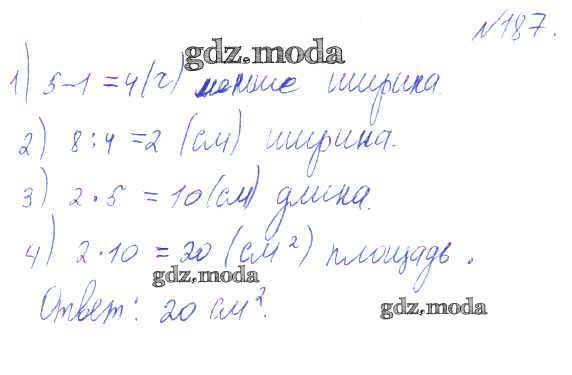 №187.
gdz.moda
1) 5-1=4(г) меньше ширина.
2) 8:4=2 (см) ширина.
3) 2·5=10(см) длина.
4) 2·10=20 (см²) площадь.
gdz.moda
Ответ: 20 см².
gdz.moda